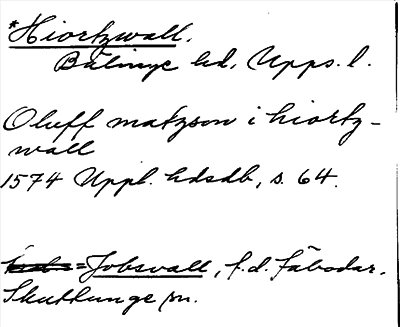 *Hiortzwall.
Bälinge hd, Upps. l.
Oluff matzson i hiortz-
wall
1574 Uppl. hdsdb, s. 64.
= Jobsvall, f.d. fäbodar.
Skuttunge sn.